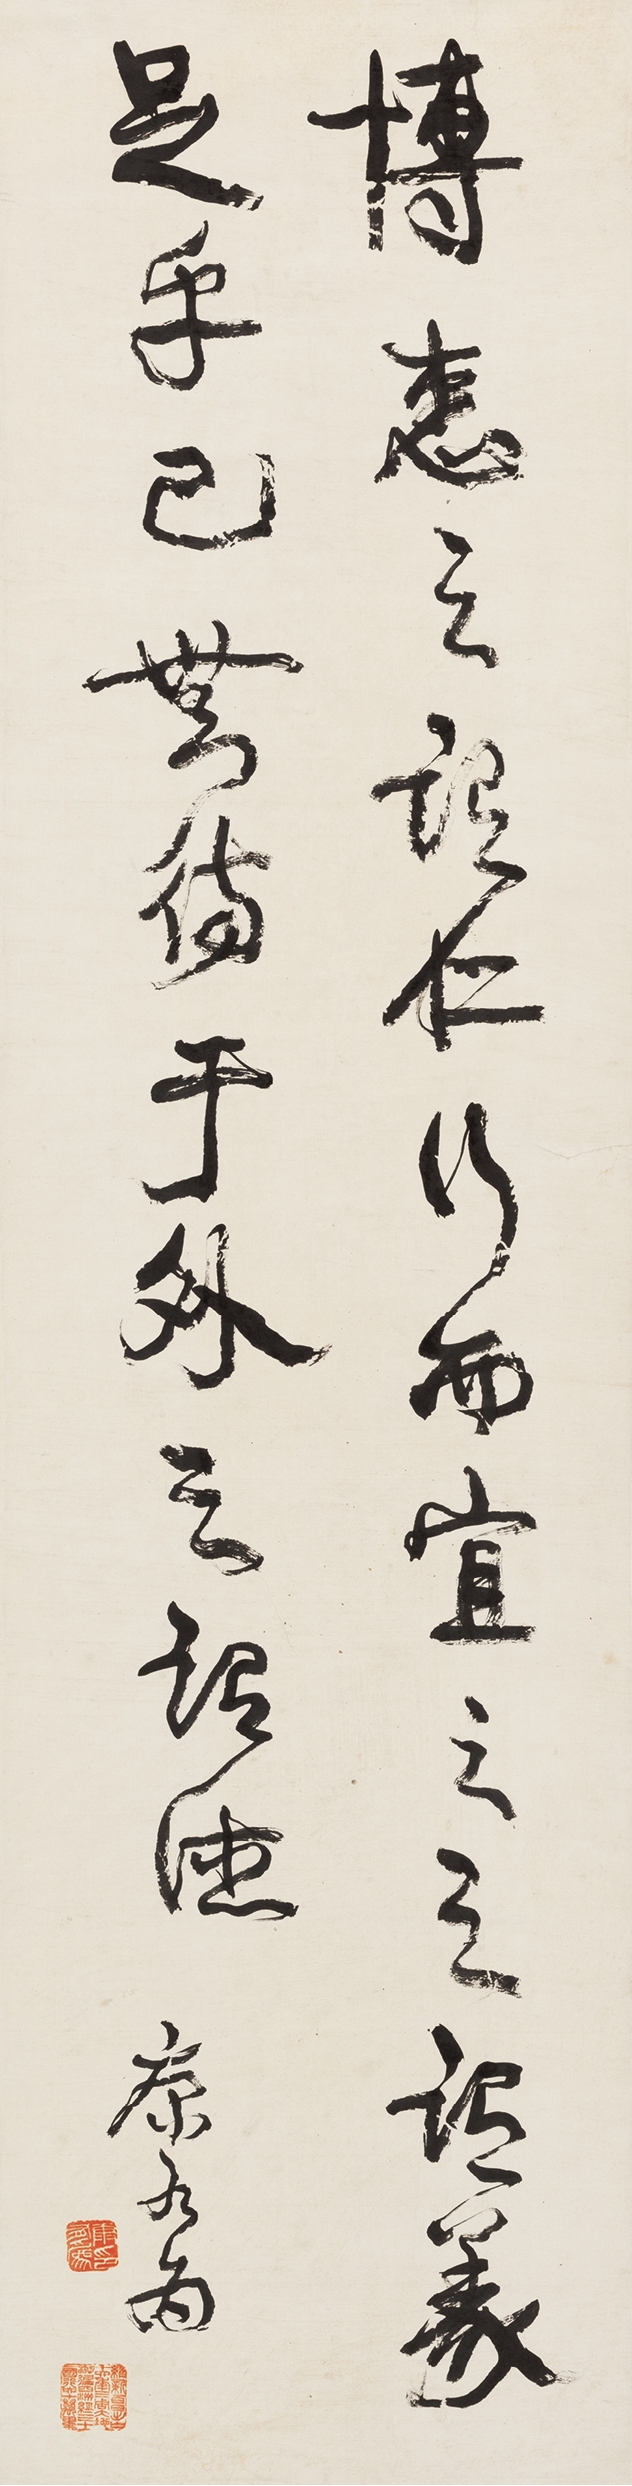 博愛之謂仁行而宜之之謂義
足乎己無待于外之謂德
康有為
康有為印